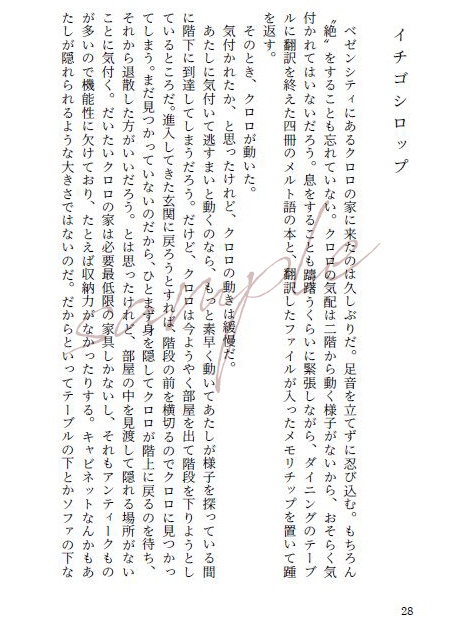 イチゴシロップ
ベゼンシティにあるクロロの家に来たのは久しぶりだ。足音を立てずに忍び込む。もちろん
〝絶〟をすることも忘れていない。クロロの気配は二階から動く様子がないから、おそらく気
付かれてはいないだろう。息をすることも躊躇うくらいに緊張しながら、ダイニングのテーブ
ルに翻訳を終えた四冊のメルト語の本と、翻訳したファイルが入ったメモリチップを置いて踵
を返す。
そのとき、クロロが動いた。
気付かれたか、と思ったけれど、クロロの動きは緩慢だ。
あたしに気付いて逃すまいと動くのなら、もっと素早く動いてあたしが様子を探っている間
に階下に到達してしまうだろう。だけど、クロロは今ようやく部屋を出て階段を下りようとし
ているところだ。進入してきた玄関に戻ろうとすれば、階段の前を横切るのでクロロに見つかっ
てしまう。まだ見つかっていないのだから、ひとまず身を隠してクロロが階上に戻るのを待ち、
それから退散した方がいいだろう。とは思ったけれど、部屋の中を見渡して隠れる場所がない
ことに気付く。だいたいクロロの家は必要最低限の家具しかないし、それもアンティークもの
が多いので機能性に欠けており、たとえば収納力がなかったりする。キャビネットなんかもあ
たしが隠れられるような大きさではないのだ。だからといってテーブルの下とかソファの下な
sample
28